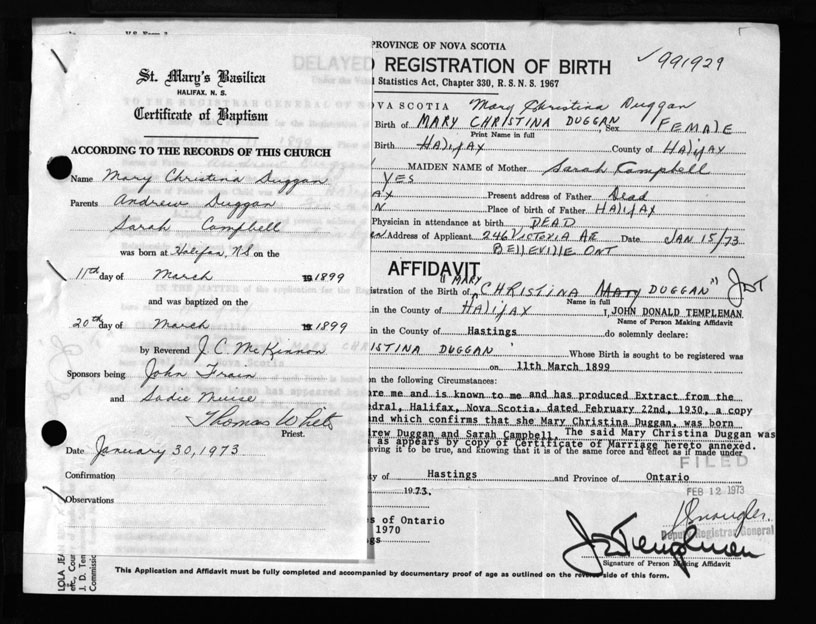 St. Mary's Basilica
HALIFAX, N. S.
Certificate of Baptism
ACCORDING TO THE RECORDS OF THIS CHURCH
Name Mary Christina Duggan
Parents Andrew Duggan
Sarah Campbell
was born at Halifax, NS on the
11th day of March 1899
and was baptized on the
20th day of March 1899
by Reverend J. C. McKinnon
Sponsors being John Train
and Sadie Meuse
Thomas White
Priest.
Date January 30, 1973
Confirmation
Observations
PROVINCE OF NOVA SCOTIA
DELAYED REGISTRATION OF BIRTH
✓991929
Statistics Act, Chapter 330, R. S. N. S. 1967
NOVA SCOTIA Mary Christina Duggan
Birth of MARY CHRISTINA DUGGAN, Sex FEMALE
Print Name in full
Birth HALIFAX County of HALIFAX
MAIDEN NAME of Mother Sarah Campbell
YES
AX Present address of Father Dead
N Place of birth of Father HALIFAX
Physician in attendance at birth DEAD
Address of Applicant 246 VICTORIA AE Date JAN 15/73
BELLEVILLE ONT
AFFIDAVIT
"MARY
istration of the Birth of CHRISTINA MARY DUGGAN" JDT
Name in full
in the County of HALIFAX I, JOHN DONALD TEMPLEMAN
Name of Person Making Affidavit
in the County of Hastings do solemnly declare:
MARY CHRISTINA DUGGAN Whose Birth is sought to be registered was
on 11th March 1899
n the following Circumstances:
re me and is known to me and has produced Extract from the
edral, Halifax, Nova Scotia, dated February 22nd, 1930, a copy
nd which confirms that she Mary Christina Duggan, was born
drew Duggan and Sarah Campbell. The said Mary Christina Duggan was
as appears by copy of Certificate of Marriage hereto annexed.
eving it to be true, and knowing that it is of the same force and effect as if made under
FILED
ty of Hastings and Province of Ontario
1973. FEB 12 1973
es of Ontario
1970
ngs
Deputy Registrar General
J D Templeman
Signature of Person Making Affidavit
This Application and Affidavit must be fully completed and accompanied by documentary proof of age as outlined on the reverse side of this form.
LOLA JEA
etc., Coun
J. D. Ten
Commissio